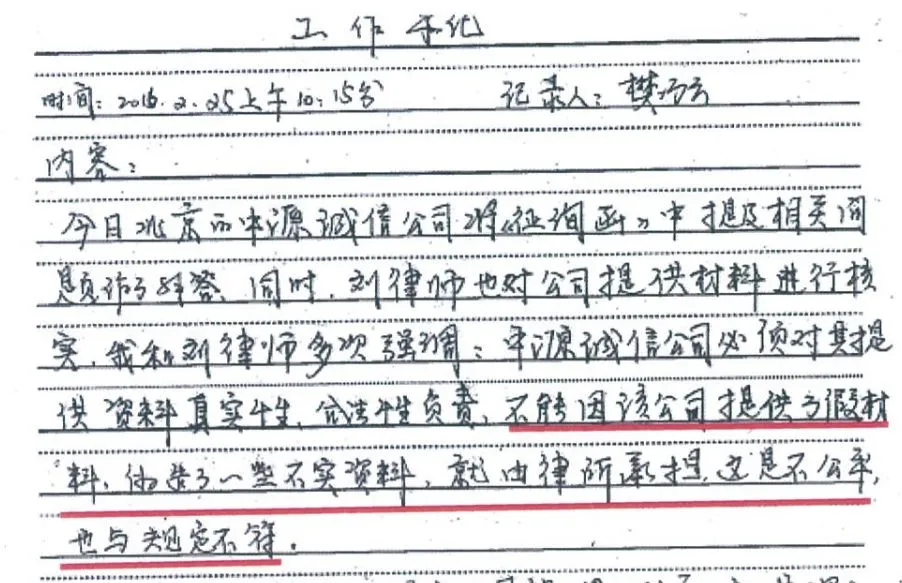 工作札记
时间：2016.2.25上午10：15分 记录人：樊
内容：
今日北京的中源诚信公司将《征询函》中提及相关问
题作了解答，同时，刘律师也对公司提供材料进行核
实，我和刘律师多次强调：中源诚信公司必须对其提
供资料真实性，合法性负责，不能因该公司提供了假材
料，伪造了一些不实资料，就由律所承担，这是不公平，
也与规定不符.